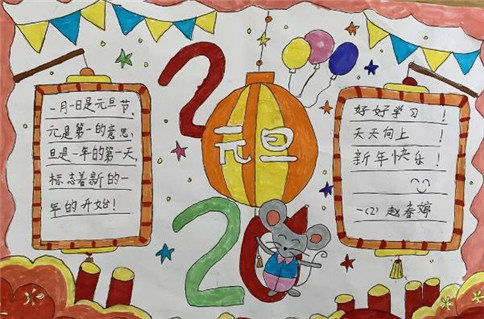 2020
元旦
一月一日是元旦节，
元是第一的意思，
旦是一年的第一天，
标志着新的一
年的开始！
好好学习！
天天向上！
新年快乐！
一(2) 赵春婷